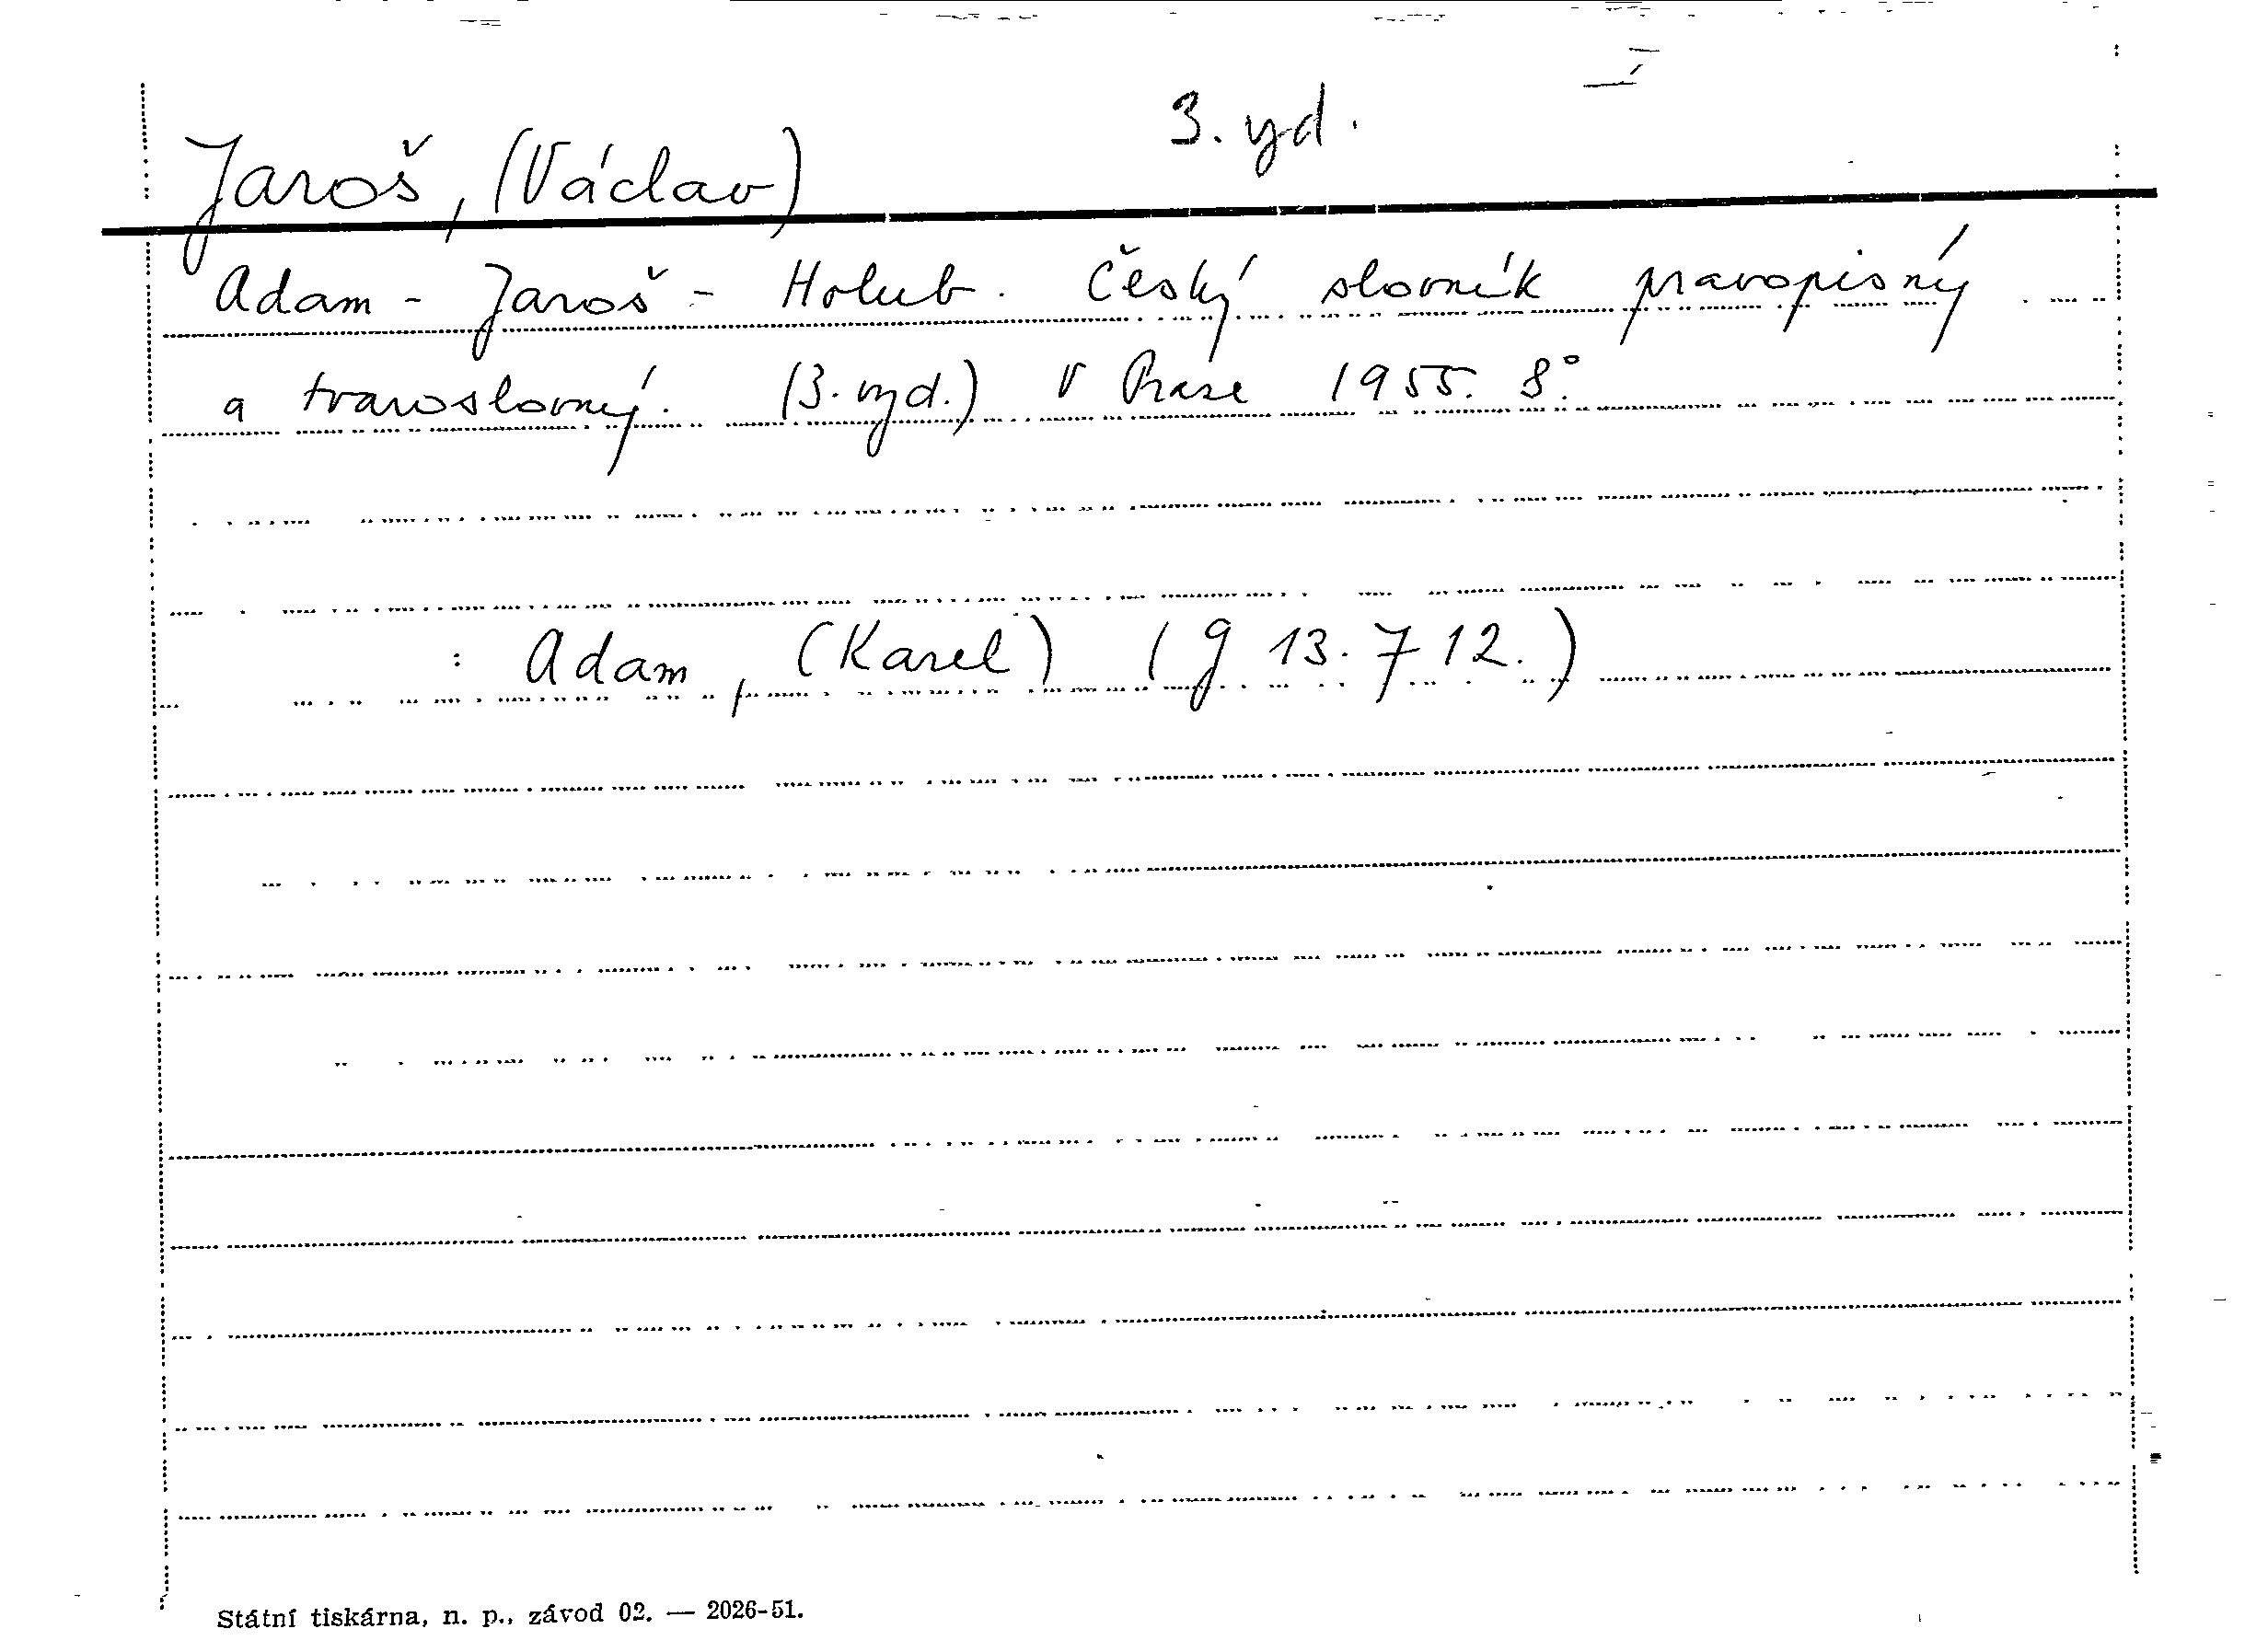 3. vyd.
Jaroš, (Václav)
Adam - Jaroš - Holub. Český slovník pravopisný
a tvaroslovný. (3. vyd.) V Praze 1955. 8°.
: Adam, (Karel) (g 13.712.)
Státní tiskárna, n. p., závod 02. — 2026-51.